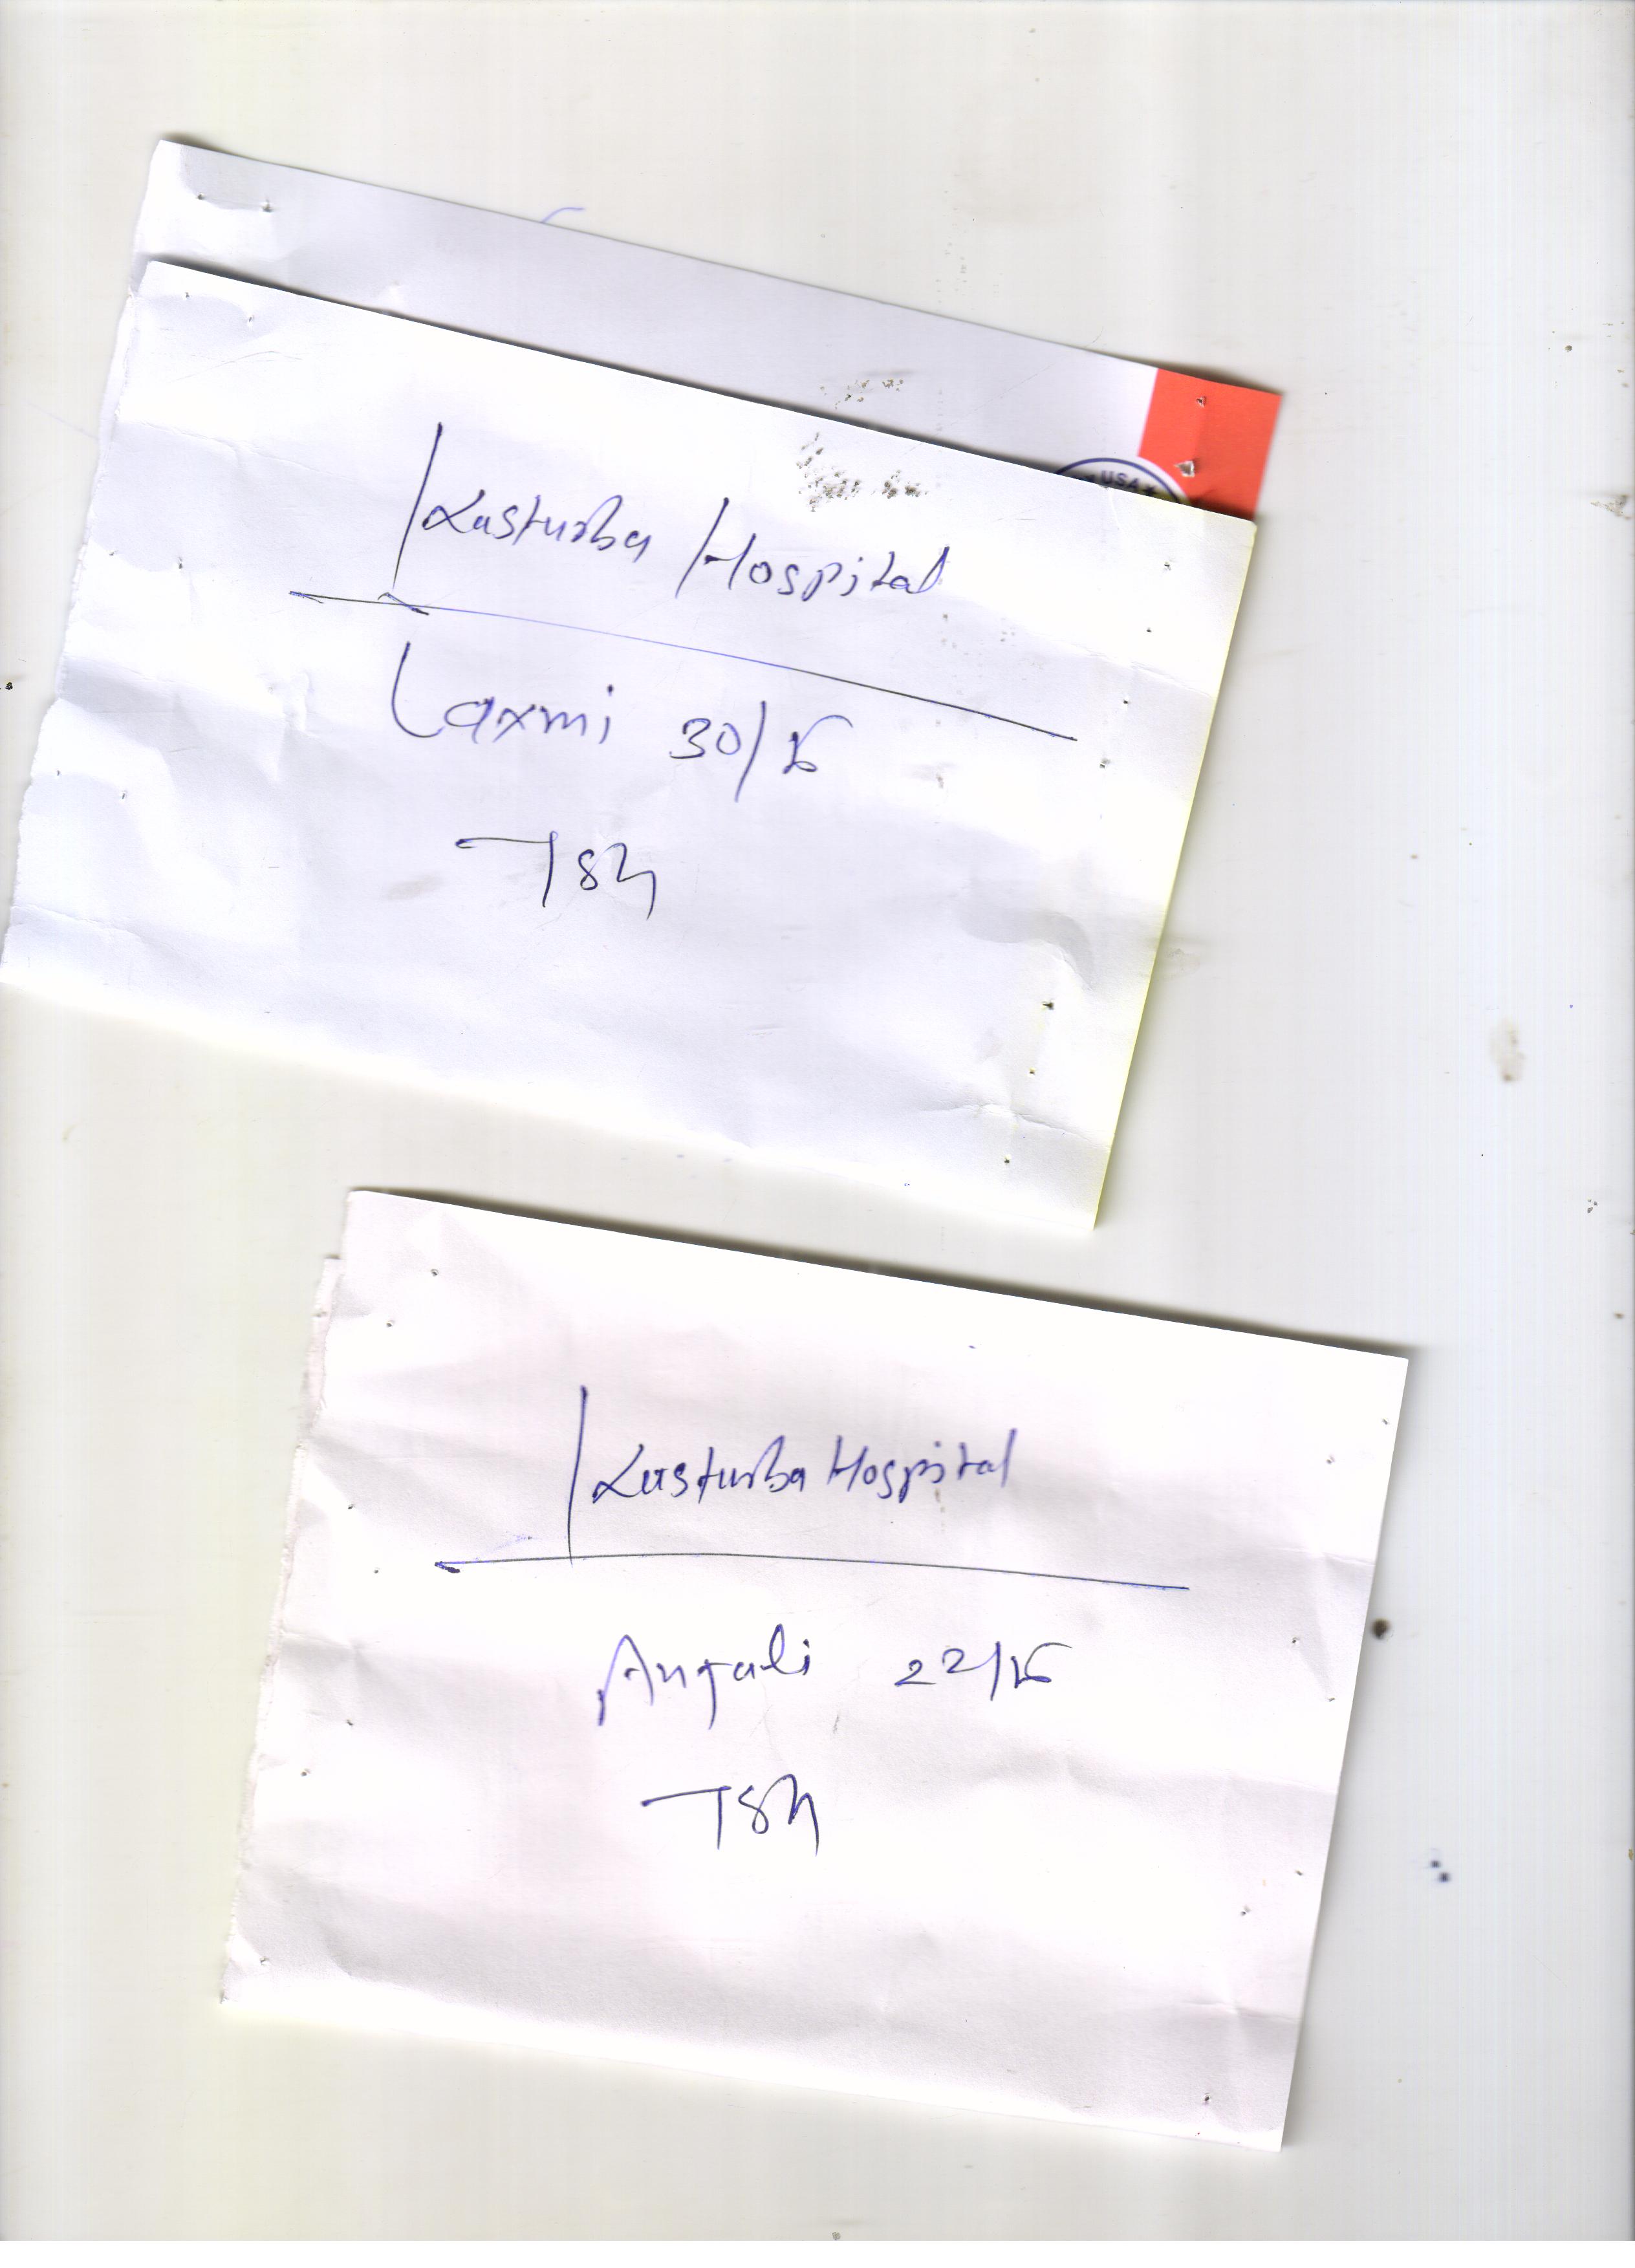 USA
Kasturba Hospital
Laxmi 30/F
TSH
Kasturba Hospital
Anjali 22/F
TSH